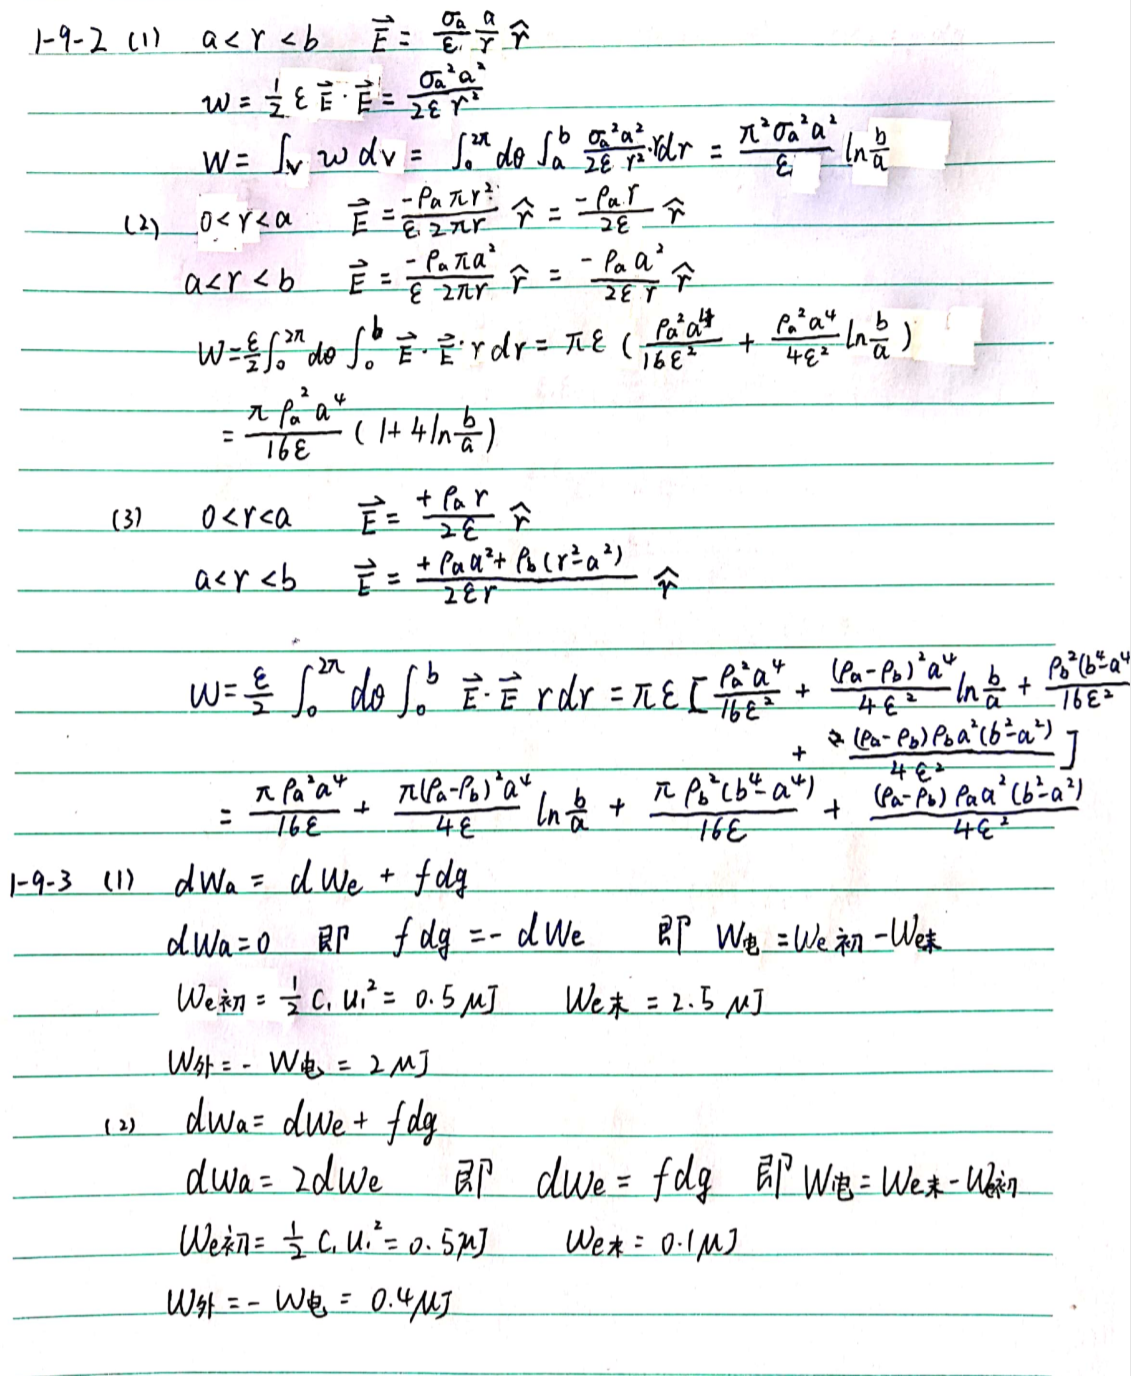 1-9-2 (1) a<r<b $\vec{E} = \frac{\sigma_a}{\varepsilon} \frac{a}{r} \hat{r}$
$w = \frac{1}{2} \varepsilon \vec{E} \cdot \vec{E} = \frac{\sigma_a^2 a^2}{2\varepsilon r^2}$
$W = \int_V w dv = \int_0^{2\pi} d\theta \int_a^b \frac{\sigma_a^2 a^2}{2\varepsilon r^2} \cdot r dr = \frac{\pi^2 \sigma_a^2 a^2}{\varepsilon} \ln\frac{b}{a}$
(2) 0<r<a $\vec{E} = \frac{-\rho_a \pi r^2}{\varepsilon \cdot 2\pi r} \hat{r} = \frac{-\rho_a r}{2\varepsilon} \hat{r}$
a<r<b $\vec{E} = \frac{-\rho_a \pi a^2}{\varepsilon \cdot 2\pi r} \hat{r} = \frac{-\rho_a a^2}{2\varepsilon r} \hat{r}$
$W = \frac{\varepsilon}{2} \int_0^{2\pi} d\theta \int_0^b \vec{E} \cdot \vec{E} \cdot r dr = \pi\varepsilon ( \frac{\rho_a^2 a^4}{16\varepsilon^2} + \frac{\rho_a^2 a^4}{4\varepsilon^2} \ln\frac{b}{a} )$
$= \frac{\pi \rho_a^2 a^4}{16\varepsilon} ( 1 + 4\ln\frac{b}{a} )$
(3) 0<r<a $\vec{E} = \frac{+\rho_a r}{2\varepsilon} \hat{r}$
a<r<b $\vec{E} = \frac{+\rho_a a^2 + \rho_b (r^2 - a^2)}{2\varepsilon r} \hat{r}$
$W = \frac{\varepsilon}{2} \int_0^{2\pi} d\theta \int_0^b \vec{E} \cdot \vec{E} r dr = \pi\varepsilon [ \frac{\rho_a^2 a^4}{16\varepsilon^2} + \frac{(\rho_a - \rho_b)^2 a^4}{4\varepsilon^2} \ln\frac{b}{a} + \frac{\rho_b^2 (b^4 - a^4}{16\varepsilon^2}$
$+ \frac{(\rho_a - \rho_b) \rho_b a^2 (b^2 - a^2)}{4\varepsilon^2} ]$
$= \frac{\pi \rho_a^2 a^4}{16\varepsilon} + \frac{\pi (\rho_a - \rho_b)^2 a^4}{4\varepsilon} \ln\frac{b}{a} + \frac{\pi \rho_b^2 (b^4 - a^4)}{16\varepsilon} + \frac{(\rho_a - \rho_b) \rho_a a^2 (b^2 - a^2)}{4\varepsilon^2}$
1-9-3 (1) $dW_a = dW_e + fdg$
$dW_a = 0$ 即 $fdg = -dW_e$ 即 $W_电 = W_{e初} - W_{e末}$
$W_{e初} = \frac{1}{2} C_1 U_1^2 = 0.5 μJ$ $W_{e末} = 2.5 μJ$
$W_外 = -W_电 = 2 μJ$
(2) $dW_a = dW_e + fdg$
$dW_a = 2dW_e$ 即 $dW_e = fdg$ 即 $W_电 = W_{e末} - W_{e初}$
$W_{e初} = \frac{1}{2} C_1 U_1^2 = 0.5 μJ$ $W_{e末} = 0.1 μJ$
$W_外 = -W_电 = 0.4 μJ$